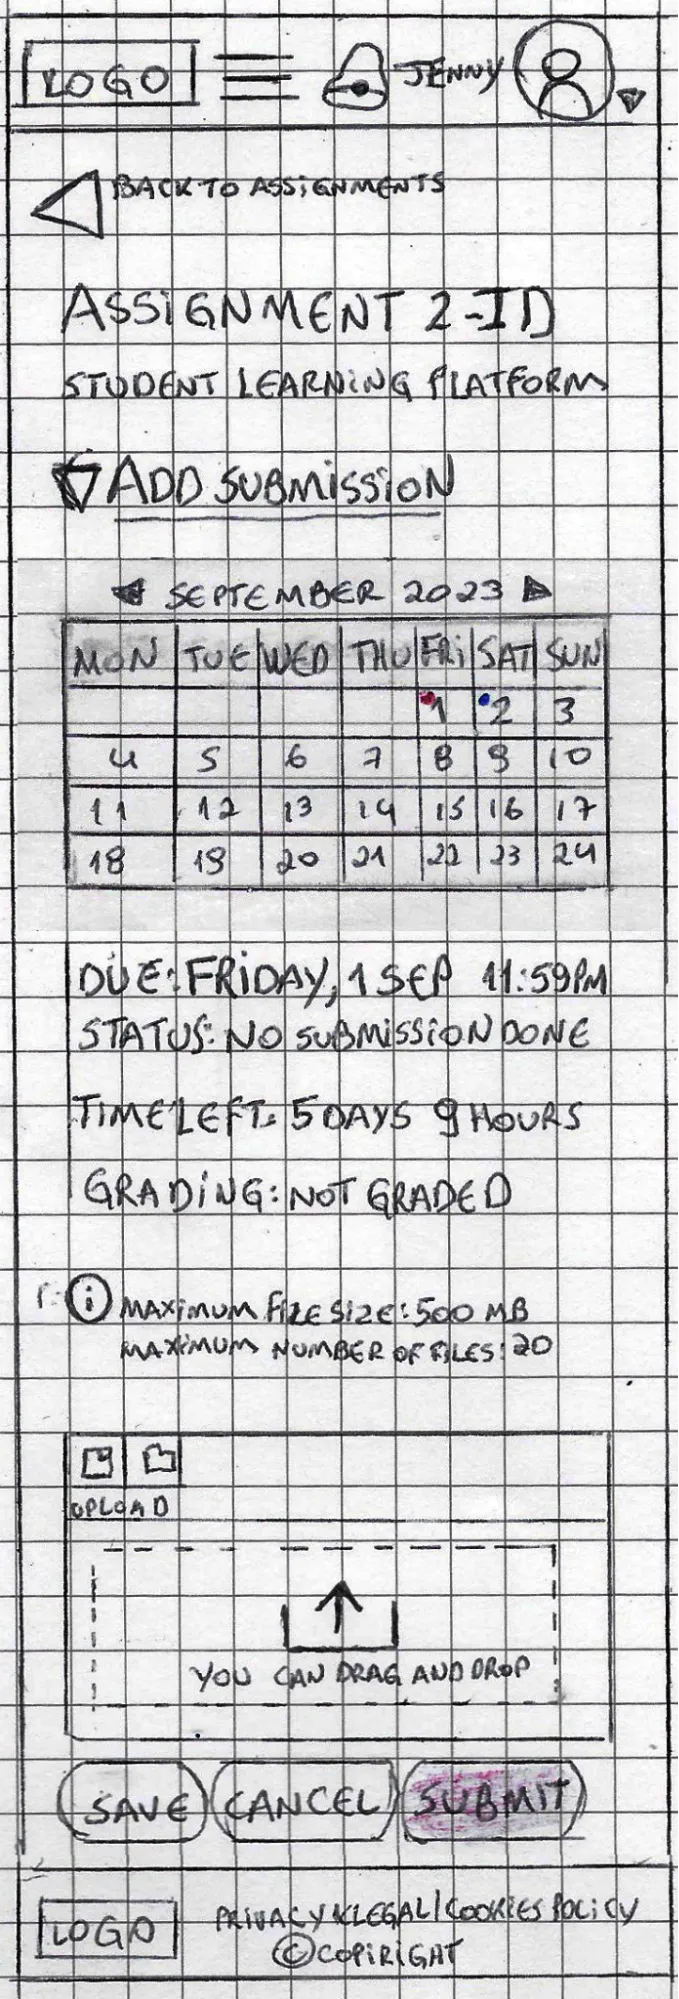 LOGO JENNY
BACK TO ASSIGNMENTS
ASSIGNMENT 2-ID
STUDENT LEARNING PLATFORM
ADD SUBMISSION
SEPTEMBER 2023
MON TUE WED THU FRI SAT SUN
1 2 3
4 5 6 7 8 9 10
11 12 13 14 15 16 17
18 19 20 21 22 23 24
DUE: FRIDAY, 1 SEP 11:59PM
STATUS: NO SUBMISSION DONE
TIME LEFT: 5 DAYS 9 HOURS
GRADING: NOT GRADED
i MAXIMUM FILE SIZE: 500 MB
MAXIMUM NUMBER OF FILES: 20
UPLOAD
YOU CAN DRAG AND DROP
SAVE CANCEL SUBMIT
LOGO PRIVACY &LEGAL/COOKIES POLICY
© COPIRIGHT